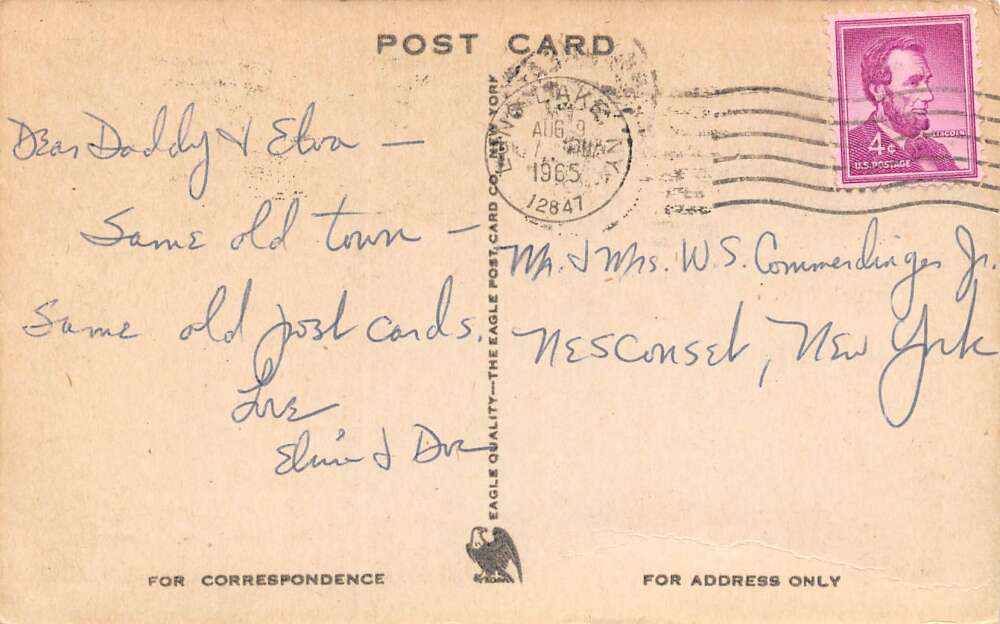 POST CARD
LONG LAKE N.Y.
AUG 9
1965
12847
LINCOLN
4¢
U.S. POSTAGE
Dear Daddy & Elva —
Same old town —
Same old post cards.
Love
Elsie &
Mr. & Mrs. W. S. Commerdinger Jr.
Nesconset, New York
EAGLE QUALITY—THE EAGLE POST CARD CO., NEW YORK
FOR CORRESPONDENCE
FOR ADDRESS ONLY